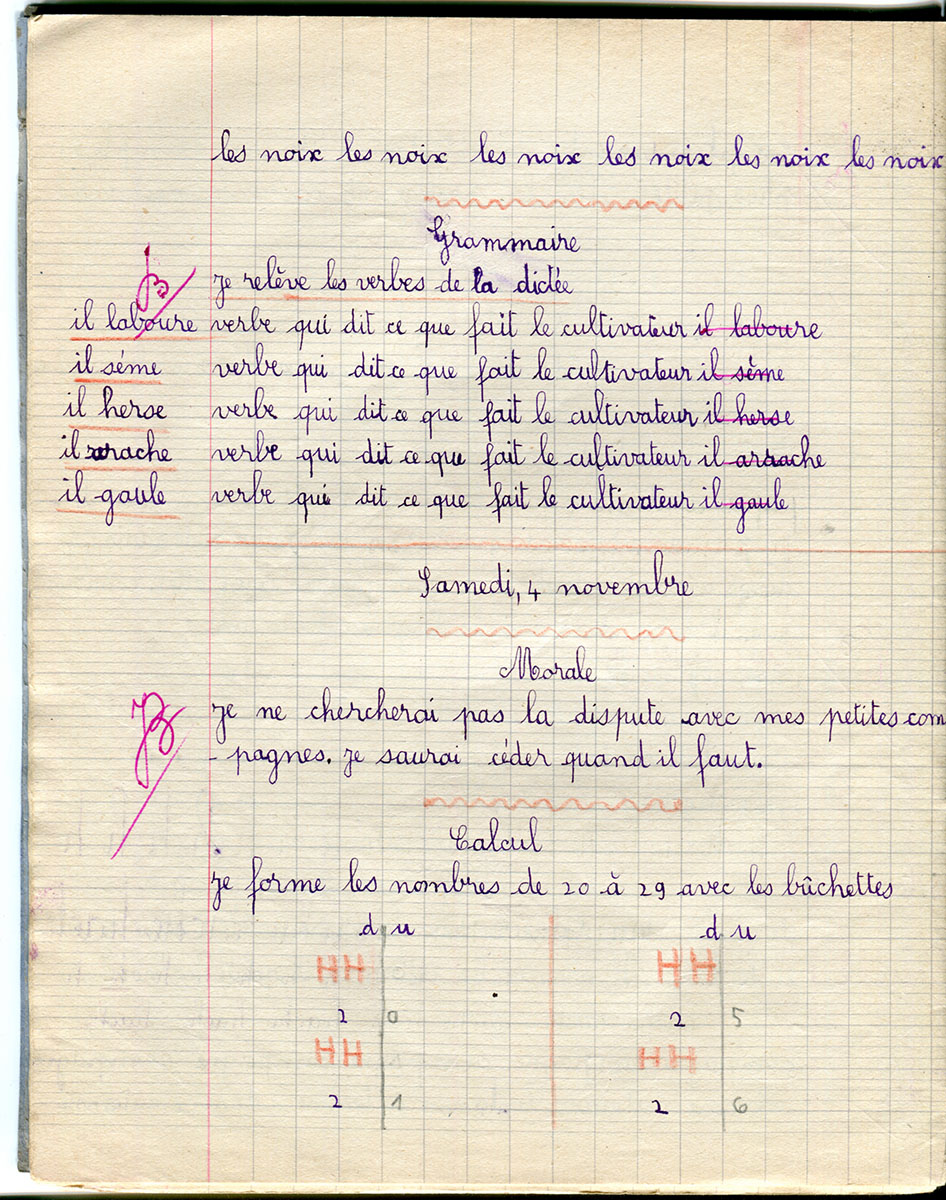 les noix les noix les noix les noix les noix les noix
Grammaire
Je relève les verbes de la dictée
il laboure verbe qui dit ce que fait le cultivateur il laboure
il séme verbe qui dit ce que fait le cultivateur il séme
il herse verbe qui dit ce que fait le cultivateur il herse
il arrache verbe qui dit ce que fait le cultivateur il arrache
il gaule verbe qui dit ce que fait le cultivateur il gaule
Samedi, 4 novembre
Morale
B
Je ne chercherai pas la dispute avec mes petites com
- pagnes. Je saurai céder quand il faut.
Calcul
Je forme les nombres de 20 à 29 avec les bûchettes
d u d u
HH HH
2 0 2 5
HH HH
2 1 2 6